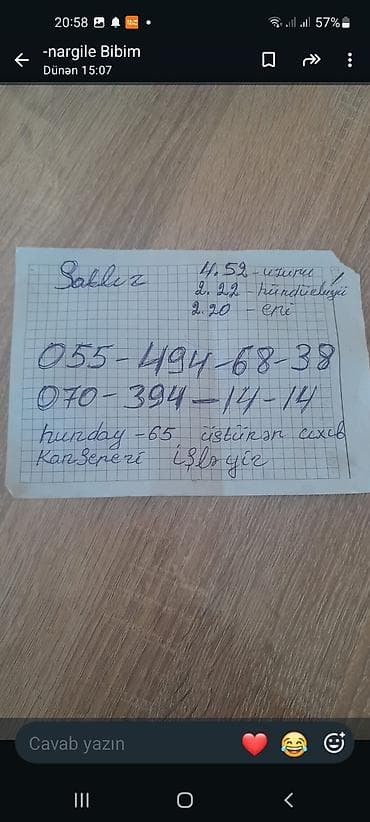 20:58
57%
-nargile Bibim
Dünən 15:07
Satlır
4.52 - uzunu
2.22 - hündürlüyü
2.20 - eni
055-494-68-38
070-394-14-14
hunday -65 üstünən cıxıb
Kanseneri işləyir
Cavab yazın